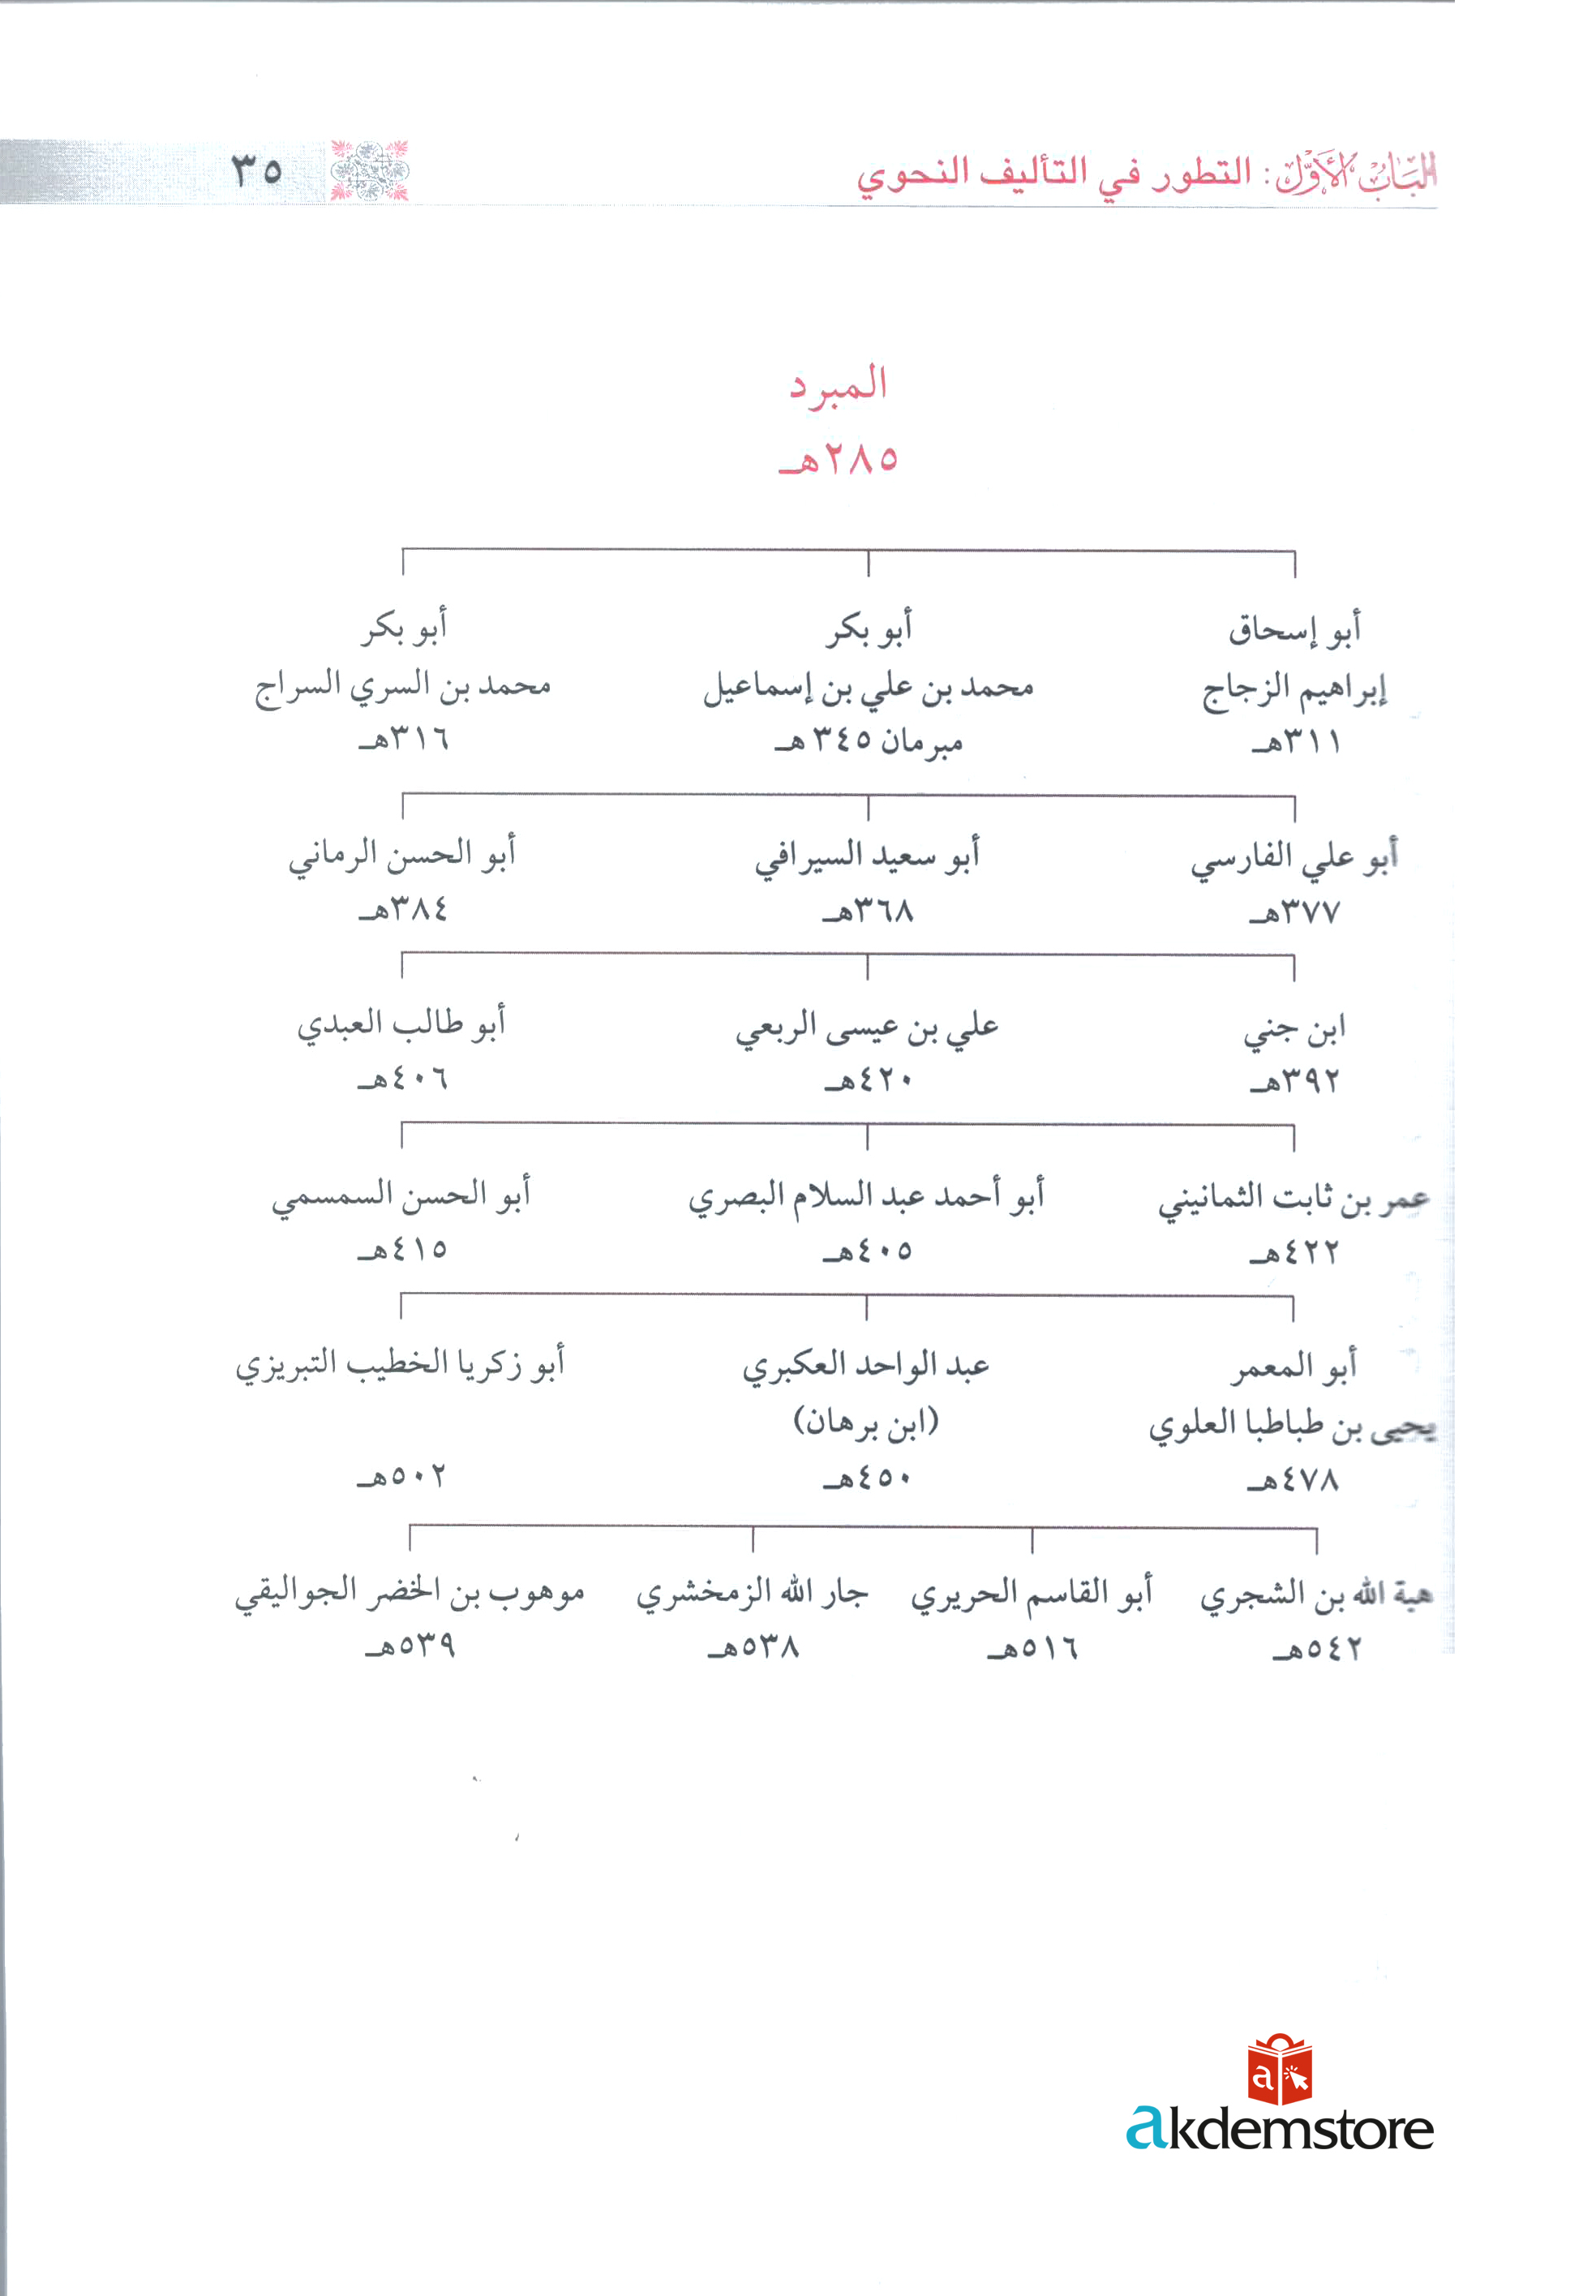 الباب الأول: التطور في التأليف النحوي
٣٥
المبرد
٢٨٥هـ
أبو إسحاق
إبراهيم الزجاج
٣١١هـ
أبو بكر
محمد بن علي بن إسماعيل
مبرمان ٣٤٥ هـ
أبو بكر
محمد بن السري السراج
٣١٦هـ
أبو علي الفارسي
٣٧٧هـ
أبو سعيد السيرافي
٣٦٨هـ
أبو الحسن الرماني
٣٨٤هـ
ابن جني
٣٩٢هـ
علي بن عيسى الربعي
٤٢٠هـ
أبو طالب العبدي
٤٠٦هـ
عمر بن ثابت الثمانيني
٤٢٢هـ
أبو أحمد عبد السلام البصري
٤٠٥هـ
أبو الحسن السمسمي
٤١٥هـ
أبو المعمر
يحيى بن طباطبا العلوي
٤٧٨هـ
عبد الواحد العكبري
(ابن برهان)
٤٥٠هـ
أبو زكريا الخطيب التبريزي
٥٠٢هـ
هبة الله بن الشجري
٥٤٢هـ
أبو القاسم الحريري
٥١٦هـ
جار الله الزمخشري
٥٣٨هـ
موهوب بن الخضر الجواليقي
٥٣٩هـ
a
akdemstore